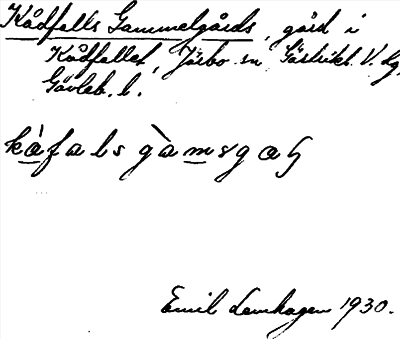 Kådfalls Gammelgårds, gård i
Kådfallet, Järbo sn Gästrikl. V. dg,
Gävleb. l.
kàfals gàmsgaɧ
Emil Lemhagen 1930.